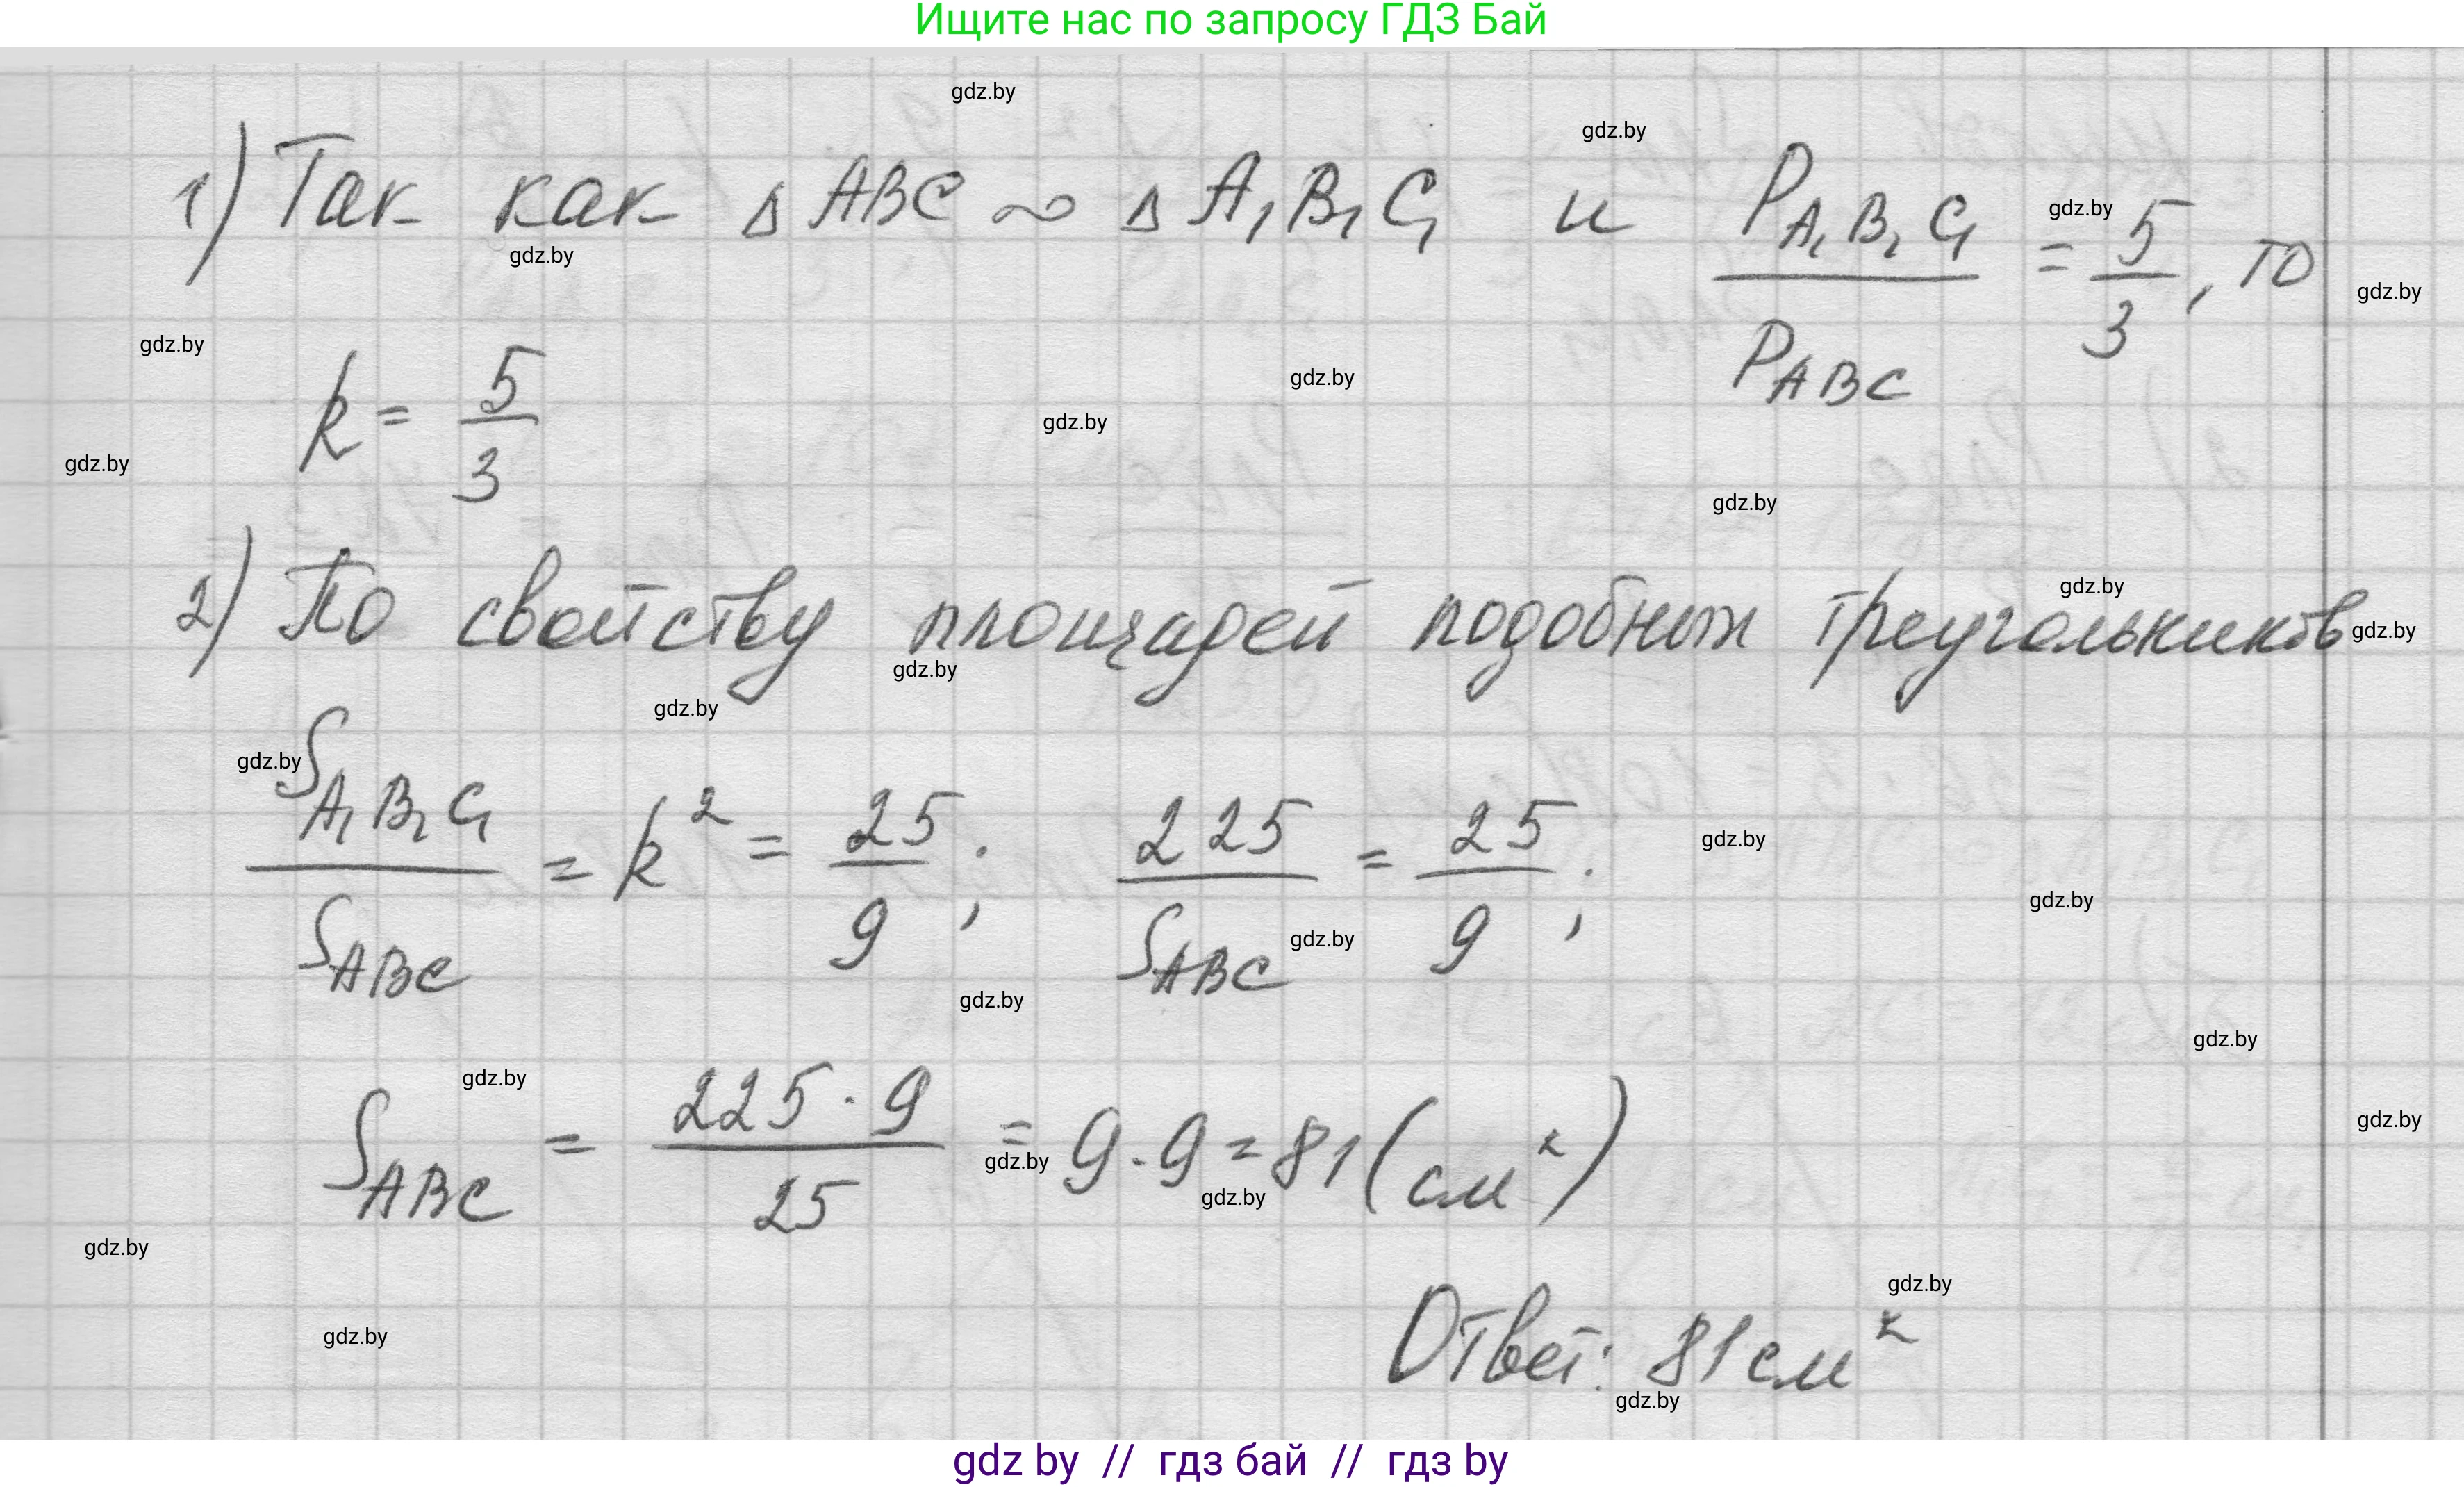 Ищите нас по запросу ГДЗ Бай
gdz.by
gdz.by
1) Так как Δ ABC ∾ Δ A₁B₁C₁ и P_A₁B₁C₁ / P_ABC = 5/3, то
gdz.by
gdz.by
gdz.by
gdz.by
gdz.by
k = 5/3
gdz.by
gdz.by
gdz.by
gdz.by
2) По свойству площадей подобных треугольников
gdz.by
gdz.by
gdz.by
gdz.by
S_A₁B₁C₁ / S_ABC = k² = 25/9; 225 / S_ABC = 25/9;
gdz.by
gdz.by
gdz.by
gdz.by
gdz.by
gdz.by
S_ABC = 225 · 9 / 25 = 9 · 9 = 81 (см²)
gdz.by
gdz.by
gdz.by
gdz.by
gdz.by
gdz.by
gdz.by
Ответ: 81 см²
gdz.by
gdz by // гдз бай // гдз by